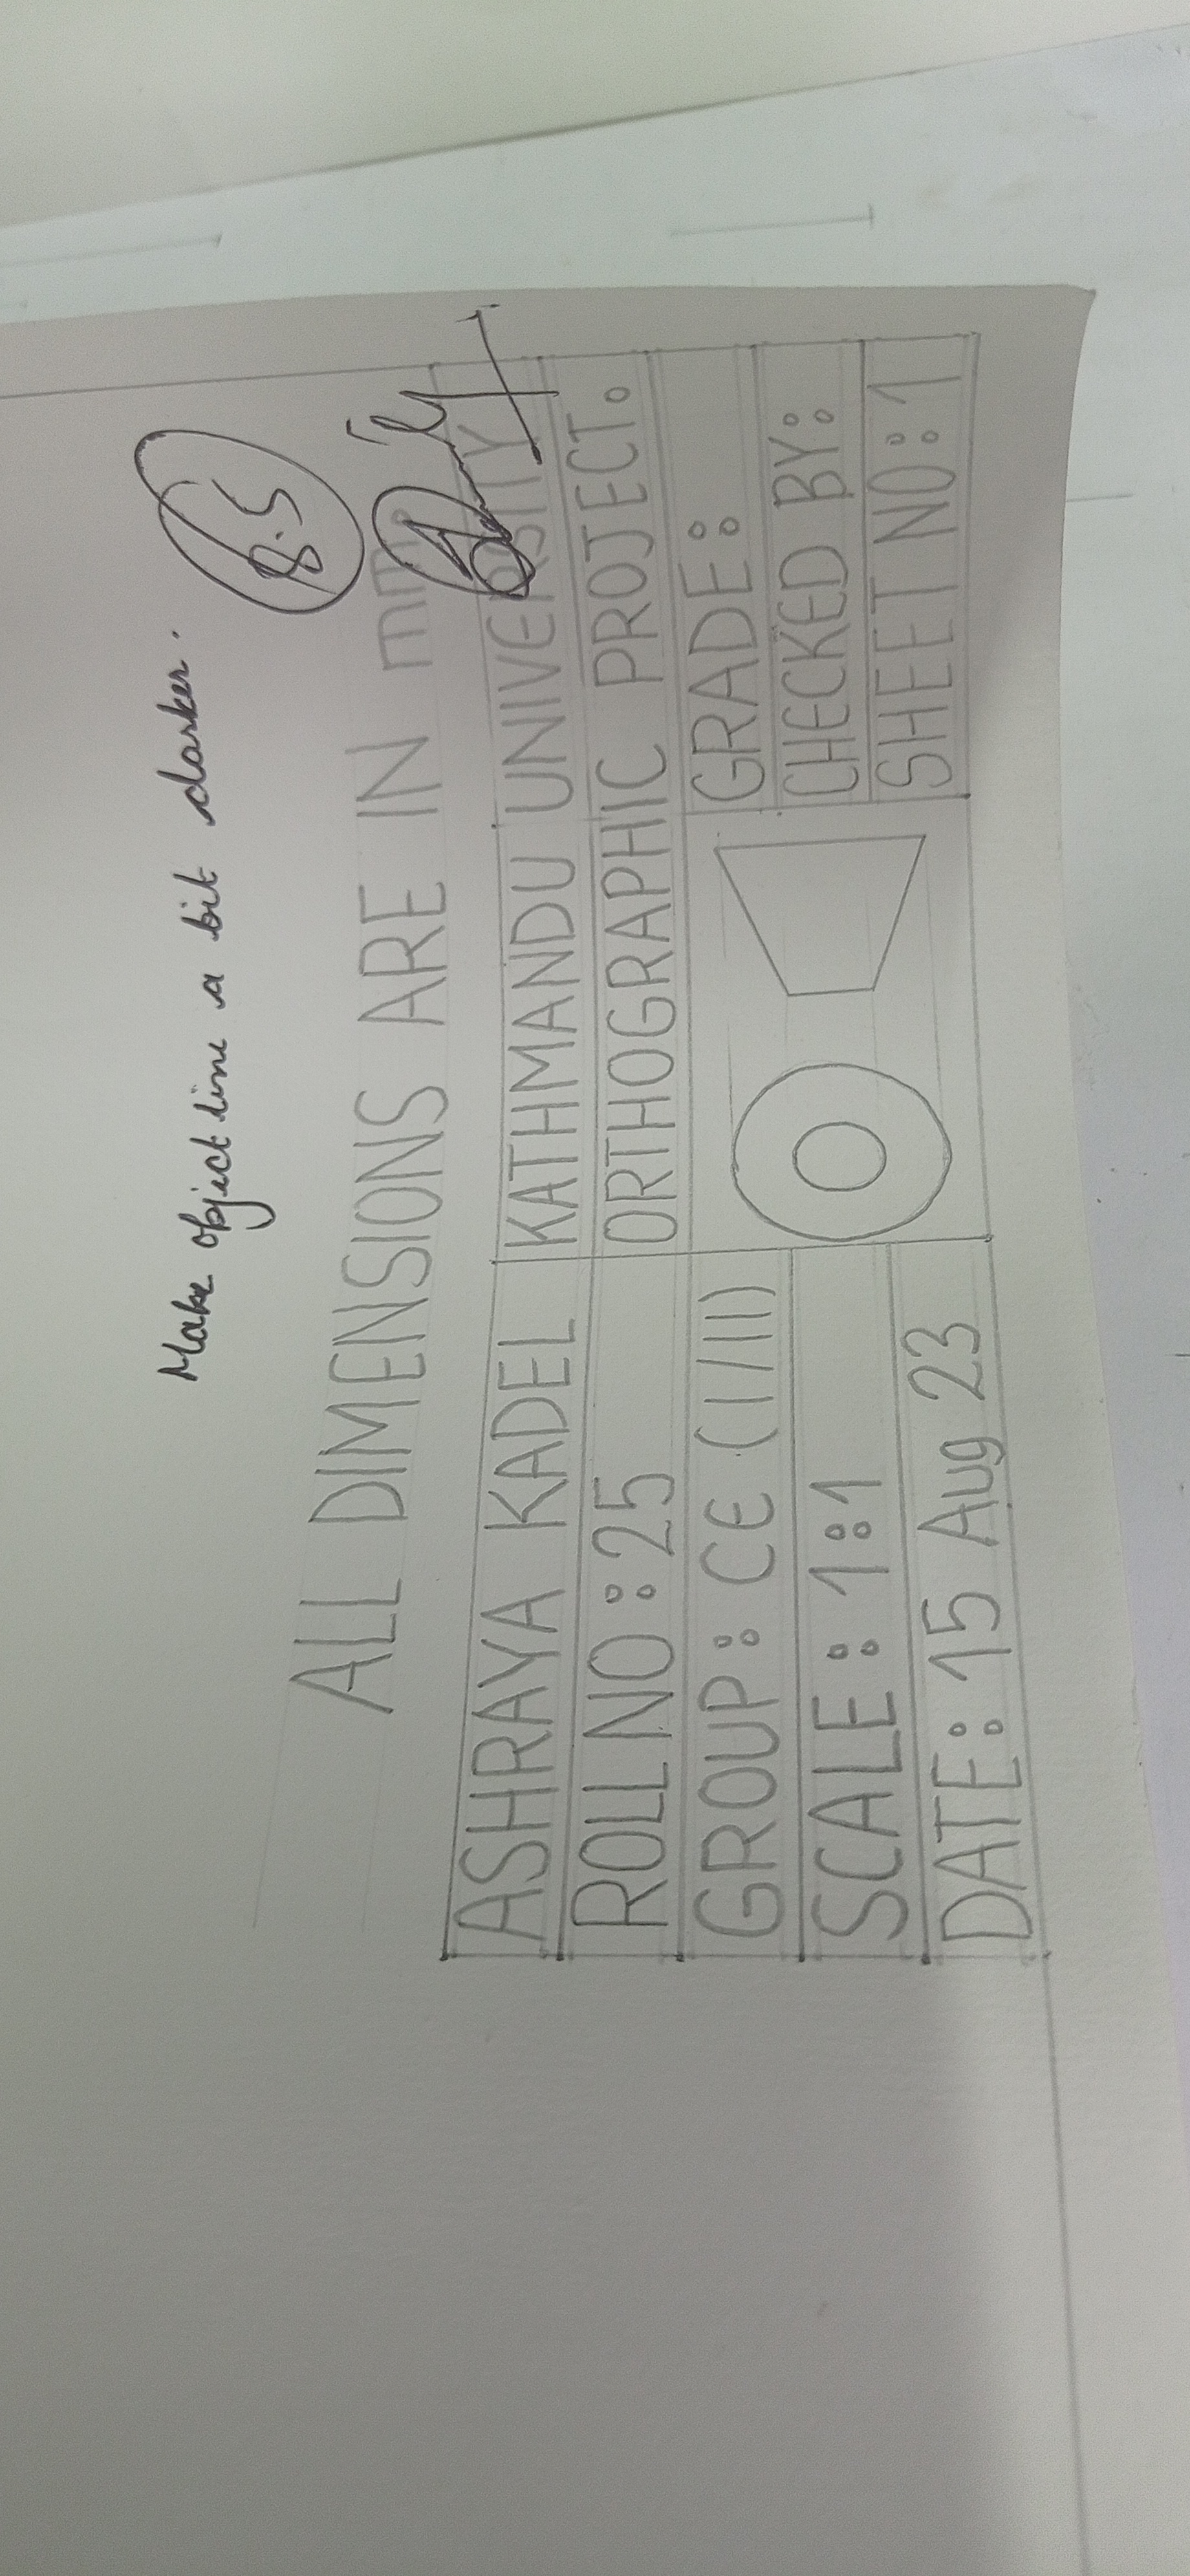 Make object line a bit darker.
8.5
ALL DIMENSIONS ARE IN mm.
ASHRAYA KADEL
KATHMANDU UNIVERSITY
ROLL NO : 25
ORTHOGRAPHIC PROJECT.
GROUP : CE (I/II)
GRADE :
SCALE : 1:1
CHECKED BY:
DATE: 15 Aug 23
SHEET NO:1